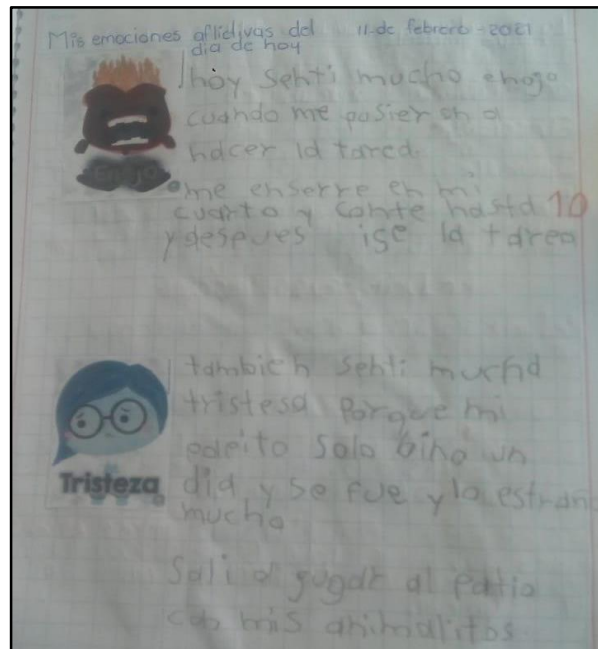 Mis emociones aflictivas del 11-de febrero-2021
día de hoy
hoy senti mucho enojo
cuando me pusieron a
hacer la tarea.
Enojo
me enserre en mi
cuarto y conte hasta 10
y despues ise la tarea
tambien senti mucha
tristesa porque mi
papito solo bino un
Tristeza
dia y se fue y lo estraño
mucho
Sali a jugar al patio
con mis animalitos